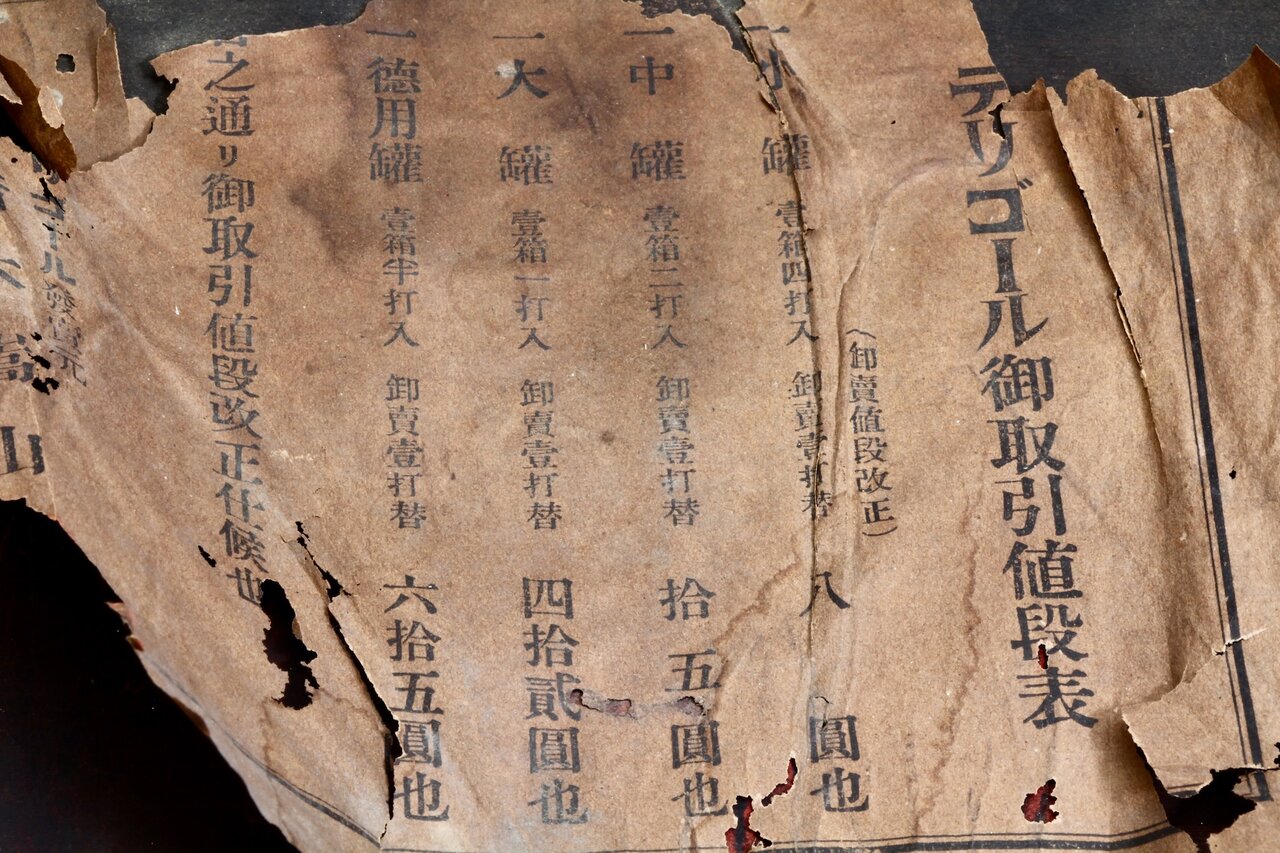 テリゴール御取引値段表
(卸賣値段改正)
一小罐 壹箱四打入 卸賣壹打替 八圓也
一中罐 壹箱二打入 卸賣壹打替 拾五圓也
一大罐 壹箱一打入 卸賣壹打替 四拾貳圓也
一德用罐 壹箱半打入 卸賣壹打替 六拾五圓也
之通リ御取引値段改正仕候也
ゴール發賣元
山